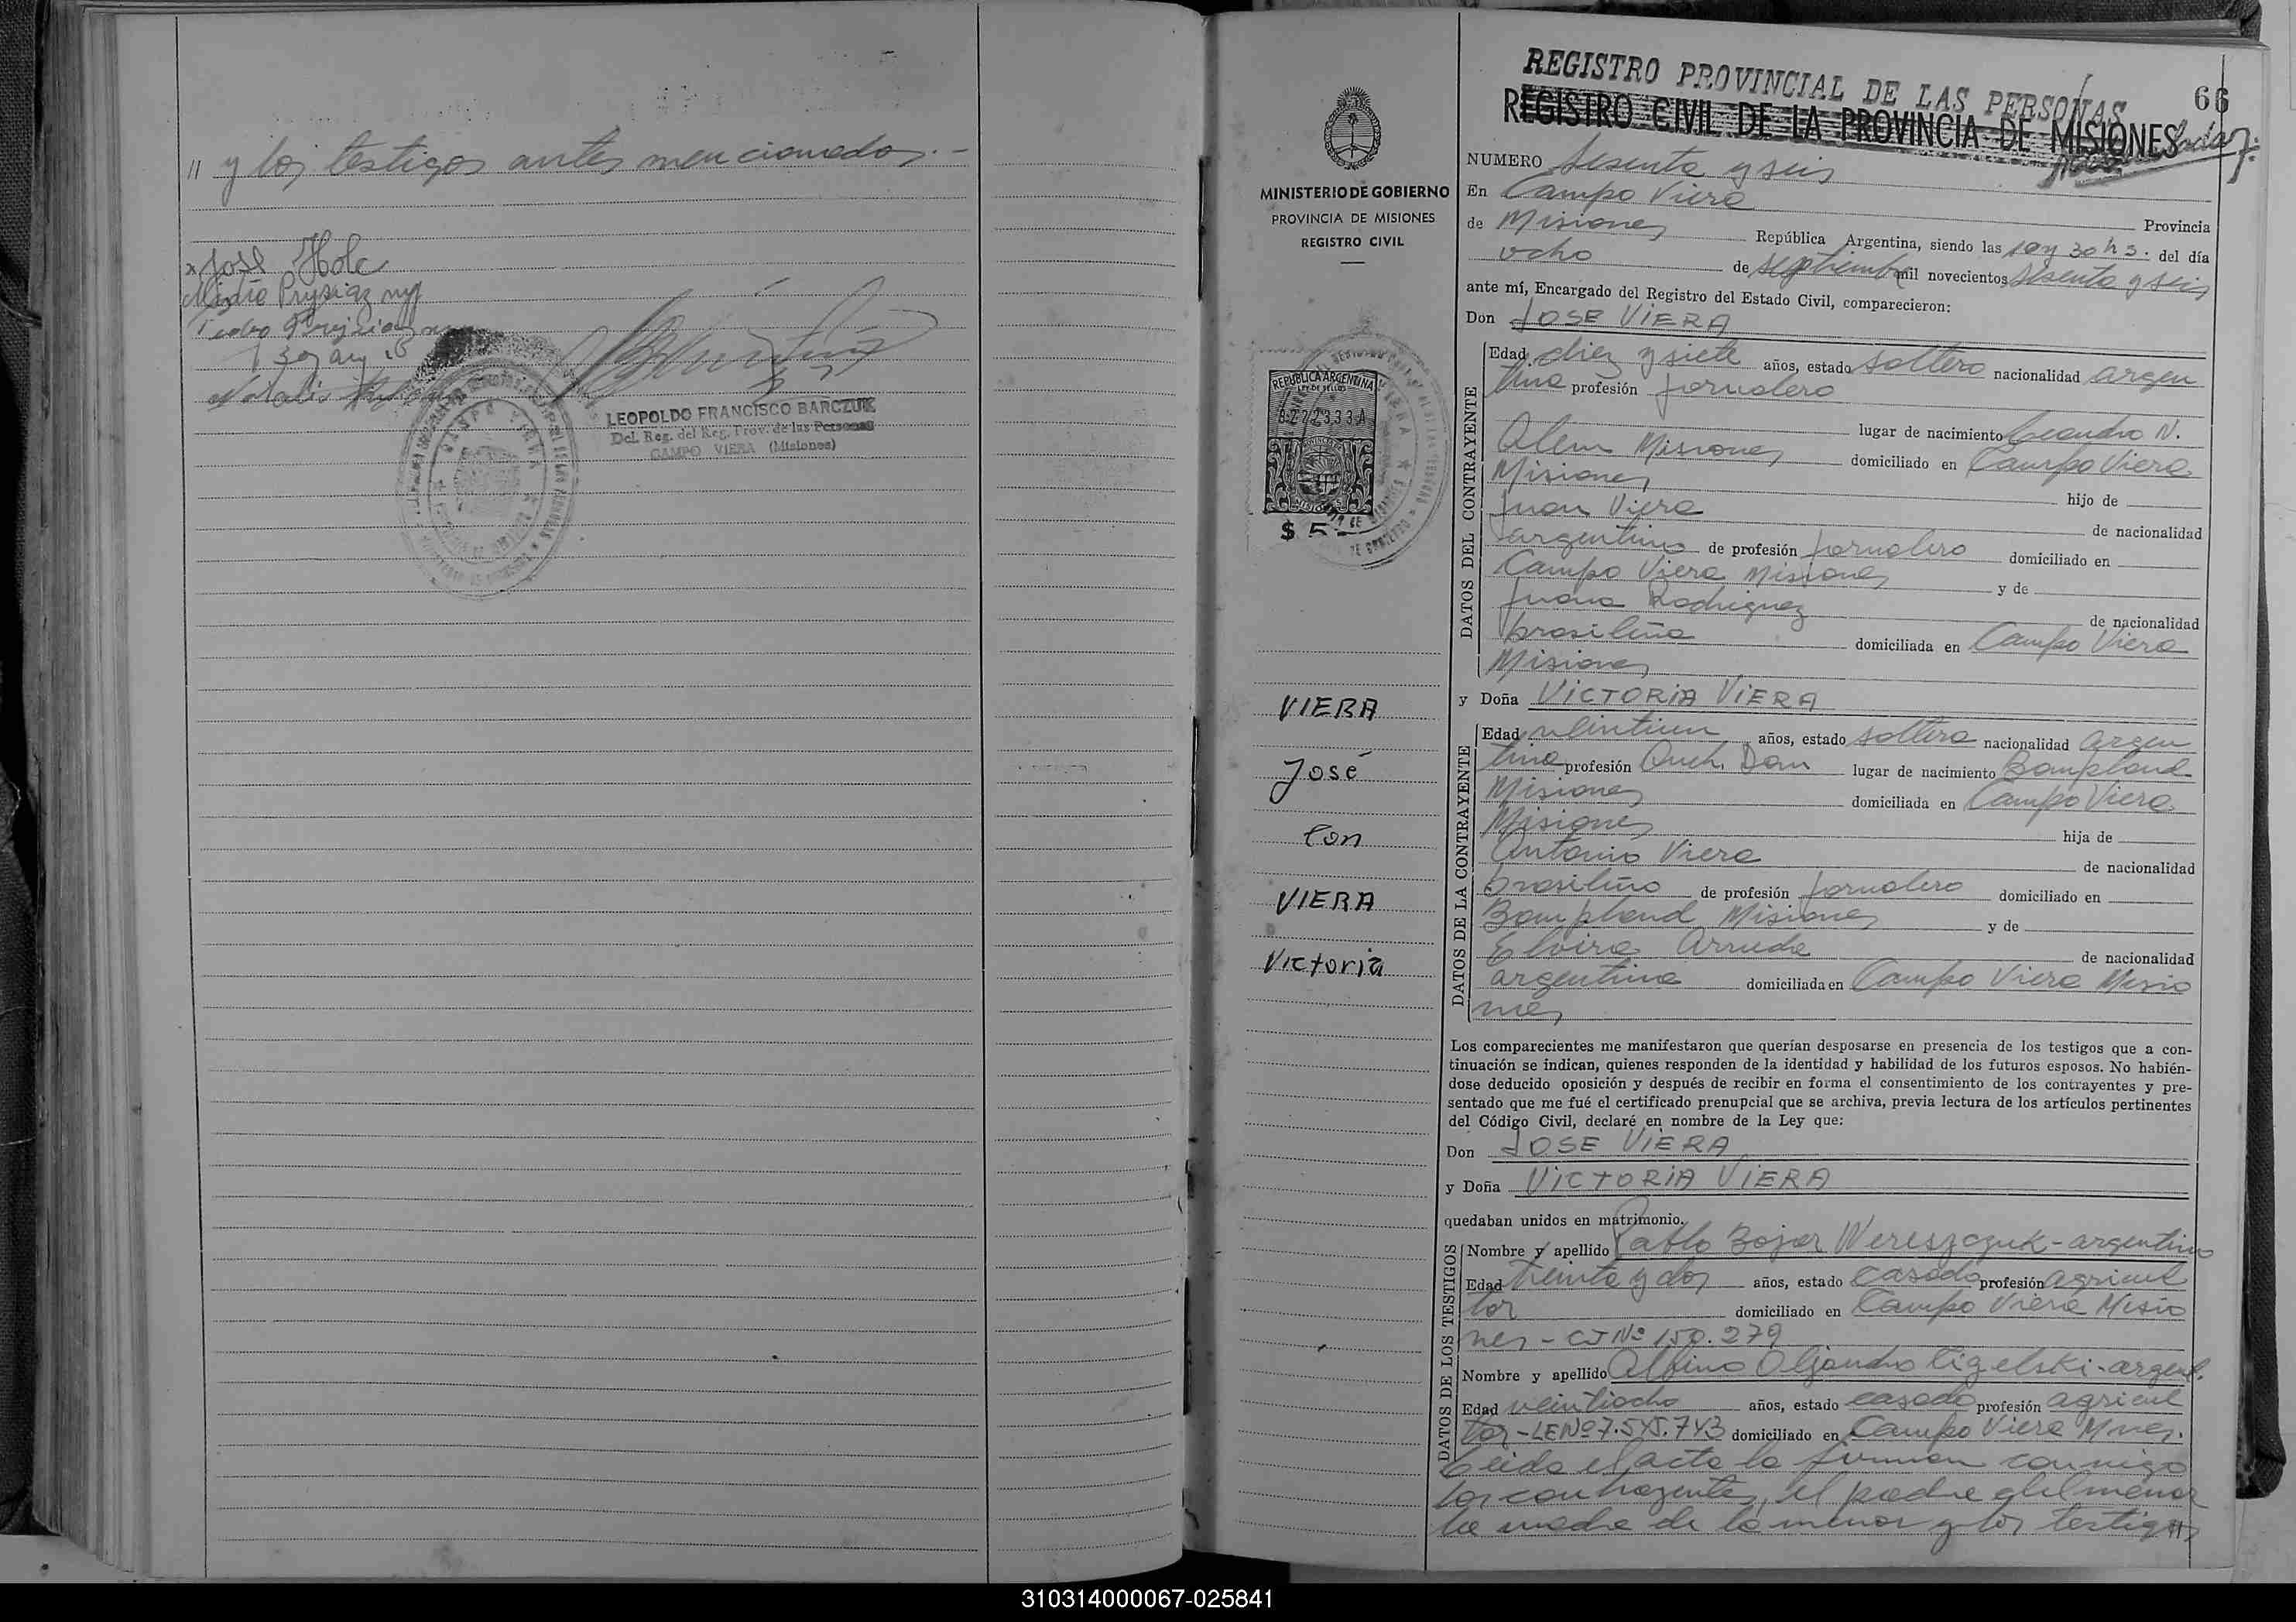 " y los testigos antes mencionados.-
x José Hole
LEOPOLDO FRANCISCO BARCZUK
Del. Reg. del Reg. Prov. de las Personas
CAMPO VIERA (Misiones)
MINISTERIO DE GOBIERNO
PROVINCIA DE MISIONES
REGISTRO CIVIL
REPUBLICA ARGENTINA
$ 5
VIERA
José
Con
VIERA
Victoria
66
REGISTRO PROVINCIAL DE LAS PERSONAS
REGISTRO CIVIL DE LA PROVINCIA DE MISIONES
NUMERO Sesenta y seis
En Campo Viera
de Misiones Provincia
República Argentina, siendo las 10 y 30 hs. del día
ocho de septiembre mil novecientos sesenta y seis
ante mí, Encargado del Registro del Estado Civil, comparecieron:
Don JOSE VIERA
DATOS DEL CONTRAYENTE
Edad diez y siete años, estado soltero nacionalidad argen
tina profesión jornalero
lugar de nacimiento Leandro N.
Alem Misiones domiciliado en Campo Viera
Misiones hijo de
Juan Viera de nacionalidad
argentino de profesión jornalero domiciliado en
Campo Viera Misiones y de
Juana Rodriguez de nacionalidad
brasileña domiciliada en Campo Viera
Misiones
y Doña VICTORIA VIERA
DATOS DE LA CONTRAYENTE
Edad veintiun años, estado soltera nacionalidad argen
tina profesión Queh. Dom lugar de nacimiento Bompland
Misiones domiciliada en Campo Viera
Misiones hija de
Antonio Viera de nacionalidad
brasileño de profesión jornalero domiciliado en
Bompland Misiones y de
Elvira Arruda de nacionalidad
argentina domiciliada en Campo Viera Misio
nes
Los comparecientes me manifestaron que querían desposarse en presencia de los testigos que a con-
tinuación se indican, quienes responden de la identidad y habilidad de los futuros esposos. No habién-
dose deducido oposición y después de recibir en forma el consentimiento de los contrayentes y pre-
sentado que me fué el certificado prenupcial que se archiva, previa lectura de los artículos pertinentes
del Código Civil, declaré en nombre de la Ley que:
Don JOSE VIERA
y Doña VICTORIA VIERA
quedaban unidos en matrimonio.
DATOS DE LOS TESTIGOS
Nombre y apellido Pablo Bojar Wereszczuk - argentino
Edad treinta y dos años, estado casado profesión agricul
tor domiciliado en Campo Viera Misio
nes - CI Nº 150.279
Nombre y apellido Albino Aljandro Cigelski - argent.
Edad veintiocho años, estado casado profesión agricul
tor - LE Nº 7.545.743 domiciliado en Campo Viera Mnes.
Leida el acta la firman conmigo
los contrayentes, el padre del menor
la madre de la menor y los testigos
310314000067-025841